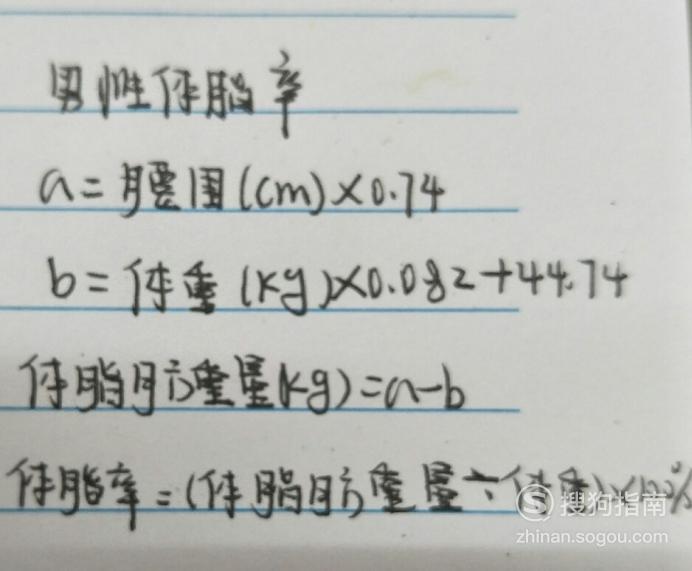 男性体脂率
a=腰围(cm)×0.74
b=体重(kg)×0.082+44.74
体脂肪重量(kg)=a-b
体脂率=(体脂肪重量÷体重)×100%
搜狗指南
zhinan.sogou.com